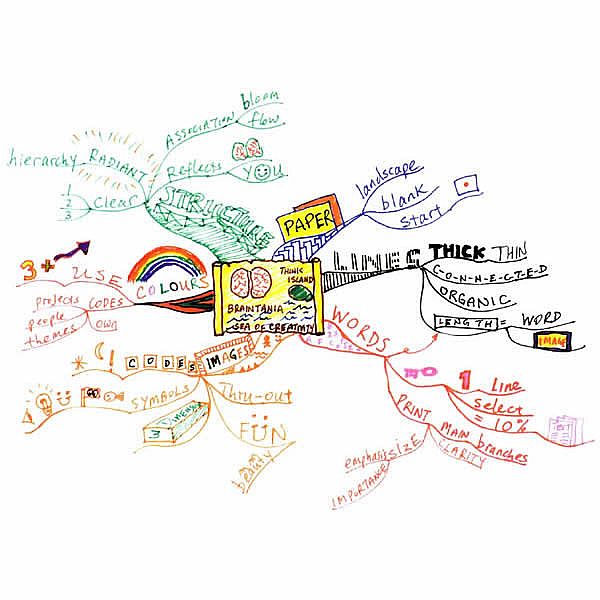 THINK
ISLAND
BRAINTANIA
SEA OF CREATIVITY
PAPER
landscape
blank
start
LINES
THICK THIN
C-O-N-N-E-C-T-E-D
ORGANIC
LENGTH = WORD
IMAGE
WORDS
NO 1 Line
select
= 10%
PRINT MAIN branches
CLARITY
SIZE
emphasis
IMPORTANCE
IMAGES
CODES
! ( *
SYMBOLS
3 Dimension
Thru-out
FÜN
beauty
COLOURS
USE
3+
CODES
projects
people
themes
own
STRUCTURE
ASSOCIATION
bloom
flow
Reflects
YOU
RADIANT
hierarchy
Clear
1
2
3